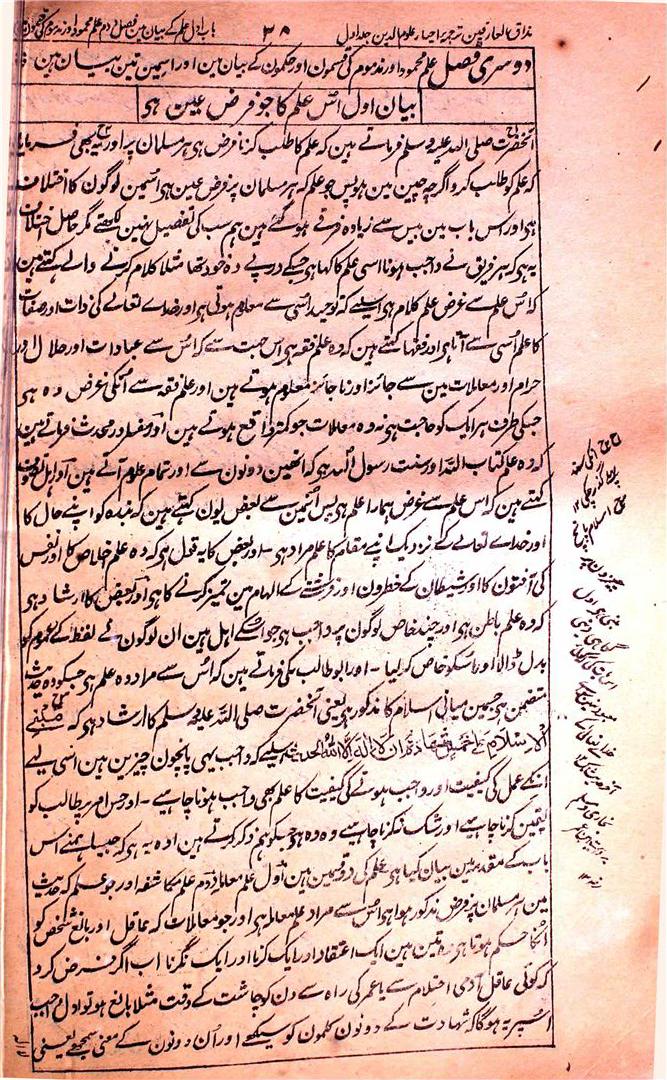 مذاق العارفین ترجمہ احیاء علوم الدین جلد اول
۳۸
باب اول علم کے بیان مین فصل دوم علم محمود اور مذموم کی
دوسری فصل علم محمود اور مذموم کی قسمون اور حکمون کے بیان مین اور اسمین تین بیان ہین
بیان اول اس علم کا جو فرض عین ہی
آنحضرت صلی اللہ علیہ وسلم فرماتے ہین کہ علم کا طلب کرنا فرض ہی ہر مسلمان پر اور یہ بھی فرمایا
کہ علم کو طلب کرو اگرچہ چین مین ہو پس جو علم کہ ہر مسلمان پر فرض عین ہی اسمین لوگون کا اختلاف
ہی اور اس باب مین بیس سے زیادہ فرقے ہو گئے ہین ہم سب کی تفصیل نہین لکھتے مگر حاصل اختلاف
یہ ہی کہ ہر فریق نے واجب ہونا اسی علم کا کہا ہی جسکے درپے وہ خود تھا مثلا کلام کرنے والے کہتے ہین
کہ اس علم سے غرض علم کلام ہی اسلیے کہ توحید اسی سے معلوم ہوتی ہی اور خداے تعالے کی ذات اور صفات
کا علم اسی سے آتا ہی اور فقہا کہتے ہین کہ وہ علم فقہ ہی اس جہت سے کہ اس سے عبادات اور حلال اور
حرام اور معاملات مین سے جائز اور ناجائز معلوم ہوتے ہین اور علم فقہ سے انکی غرض وہ ہی
جسکی طرف ہر ایک کو حاجت ہی نہ وہ معاملات جو کمتر واقع ہوتے ہین اور مفسر اور محدث فرماتے ہین
کہ وہ علم کتاب اللہ اور سنت رسول اللہ ہی کہ انھین دونون سے اور تمام علوم آتے ہین اور اہل تصوف
کہتے ہین کہ اس علم سے غرض ہمارا علم ہی پس انمین سے بعض یون کہتے ہین کہ بندہ کو اپنے حال کا
اور خداے تعالے کے نزدیک اپنے مقام کا علم مراد ہی اور بعض کا یہ قول ہی کہ وہ علم اخلاص کا اور نفس
کی آفتون کا اور شیطان کے خطرون اور فرشتے کے الہام مین تمیز کرنے کا ہی اور بعض کا ارشاد ہی
کہ وہ علم باطن ہی اور چند خاص لوگون پر واجب ہی جو اسکے اہل ہین ان لوگون نے لفظ کے عموم کو
بدل ڈالا اور اسکو خاص کر لیا ۔ اور ابو طالب مکی فرماتے ہین کہ اس سے مراد وہ علم ہی جسکو وہ حدیث
متضمن ہی جسمین مبانی اسلام کا مذکور ہی یعنی آنحضرت صلی اللہ علیہ وسلم کا ارشاد ہی کہ
الاسلام علی خمس شهادة ان لا اله الا الله الحدیث اسلیے کہ واجب یہی پانچون چیزین ہین اسی لیے
انکے عمل کی کیفیت اور واجب ہونے کی کیفیت کا علم بھی واجب ہونا چاہیے ۔ اور جس امر پر طالب کو
یقین کرنا چاہیے اور شک نکرنا چاہیے وہ وہ ہی جسکو ہم ذکر کرتے ہین اور وہ یہ ہی کہ جیسا ہمنے اس
باب کے مقدمہ مین بیان کیا ہی علم کی دو قسمین ہین اول علم معاملہ دوم علم مکاشفہ اور جو علم کہ حدیث
مین ہر مسلمان پر فرض مذکور ہوا ہی اس سے مراد علم معاملہ ہی اور جو معاملات کہ عاقل اور بالغ شخص کو
انکا حکم ہوتا ہی وہ تین ہین ایک اعتقاد اور ایک کرنا اور ایک نکرنا اب اگر فرض کرو
کہ کوئی عاقل آدمی احتلام سے یا عمر کی راہ سے دن کو چاشت کے وقت مثلا بالغ ہو تو اول واجب
اسپر یہ ہوگا کہ شہادت کے دونون کلمون کو سیکھے اور ان دونون کے معنی سمجھے یعنی